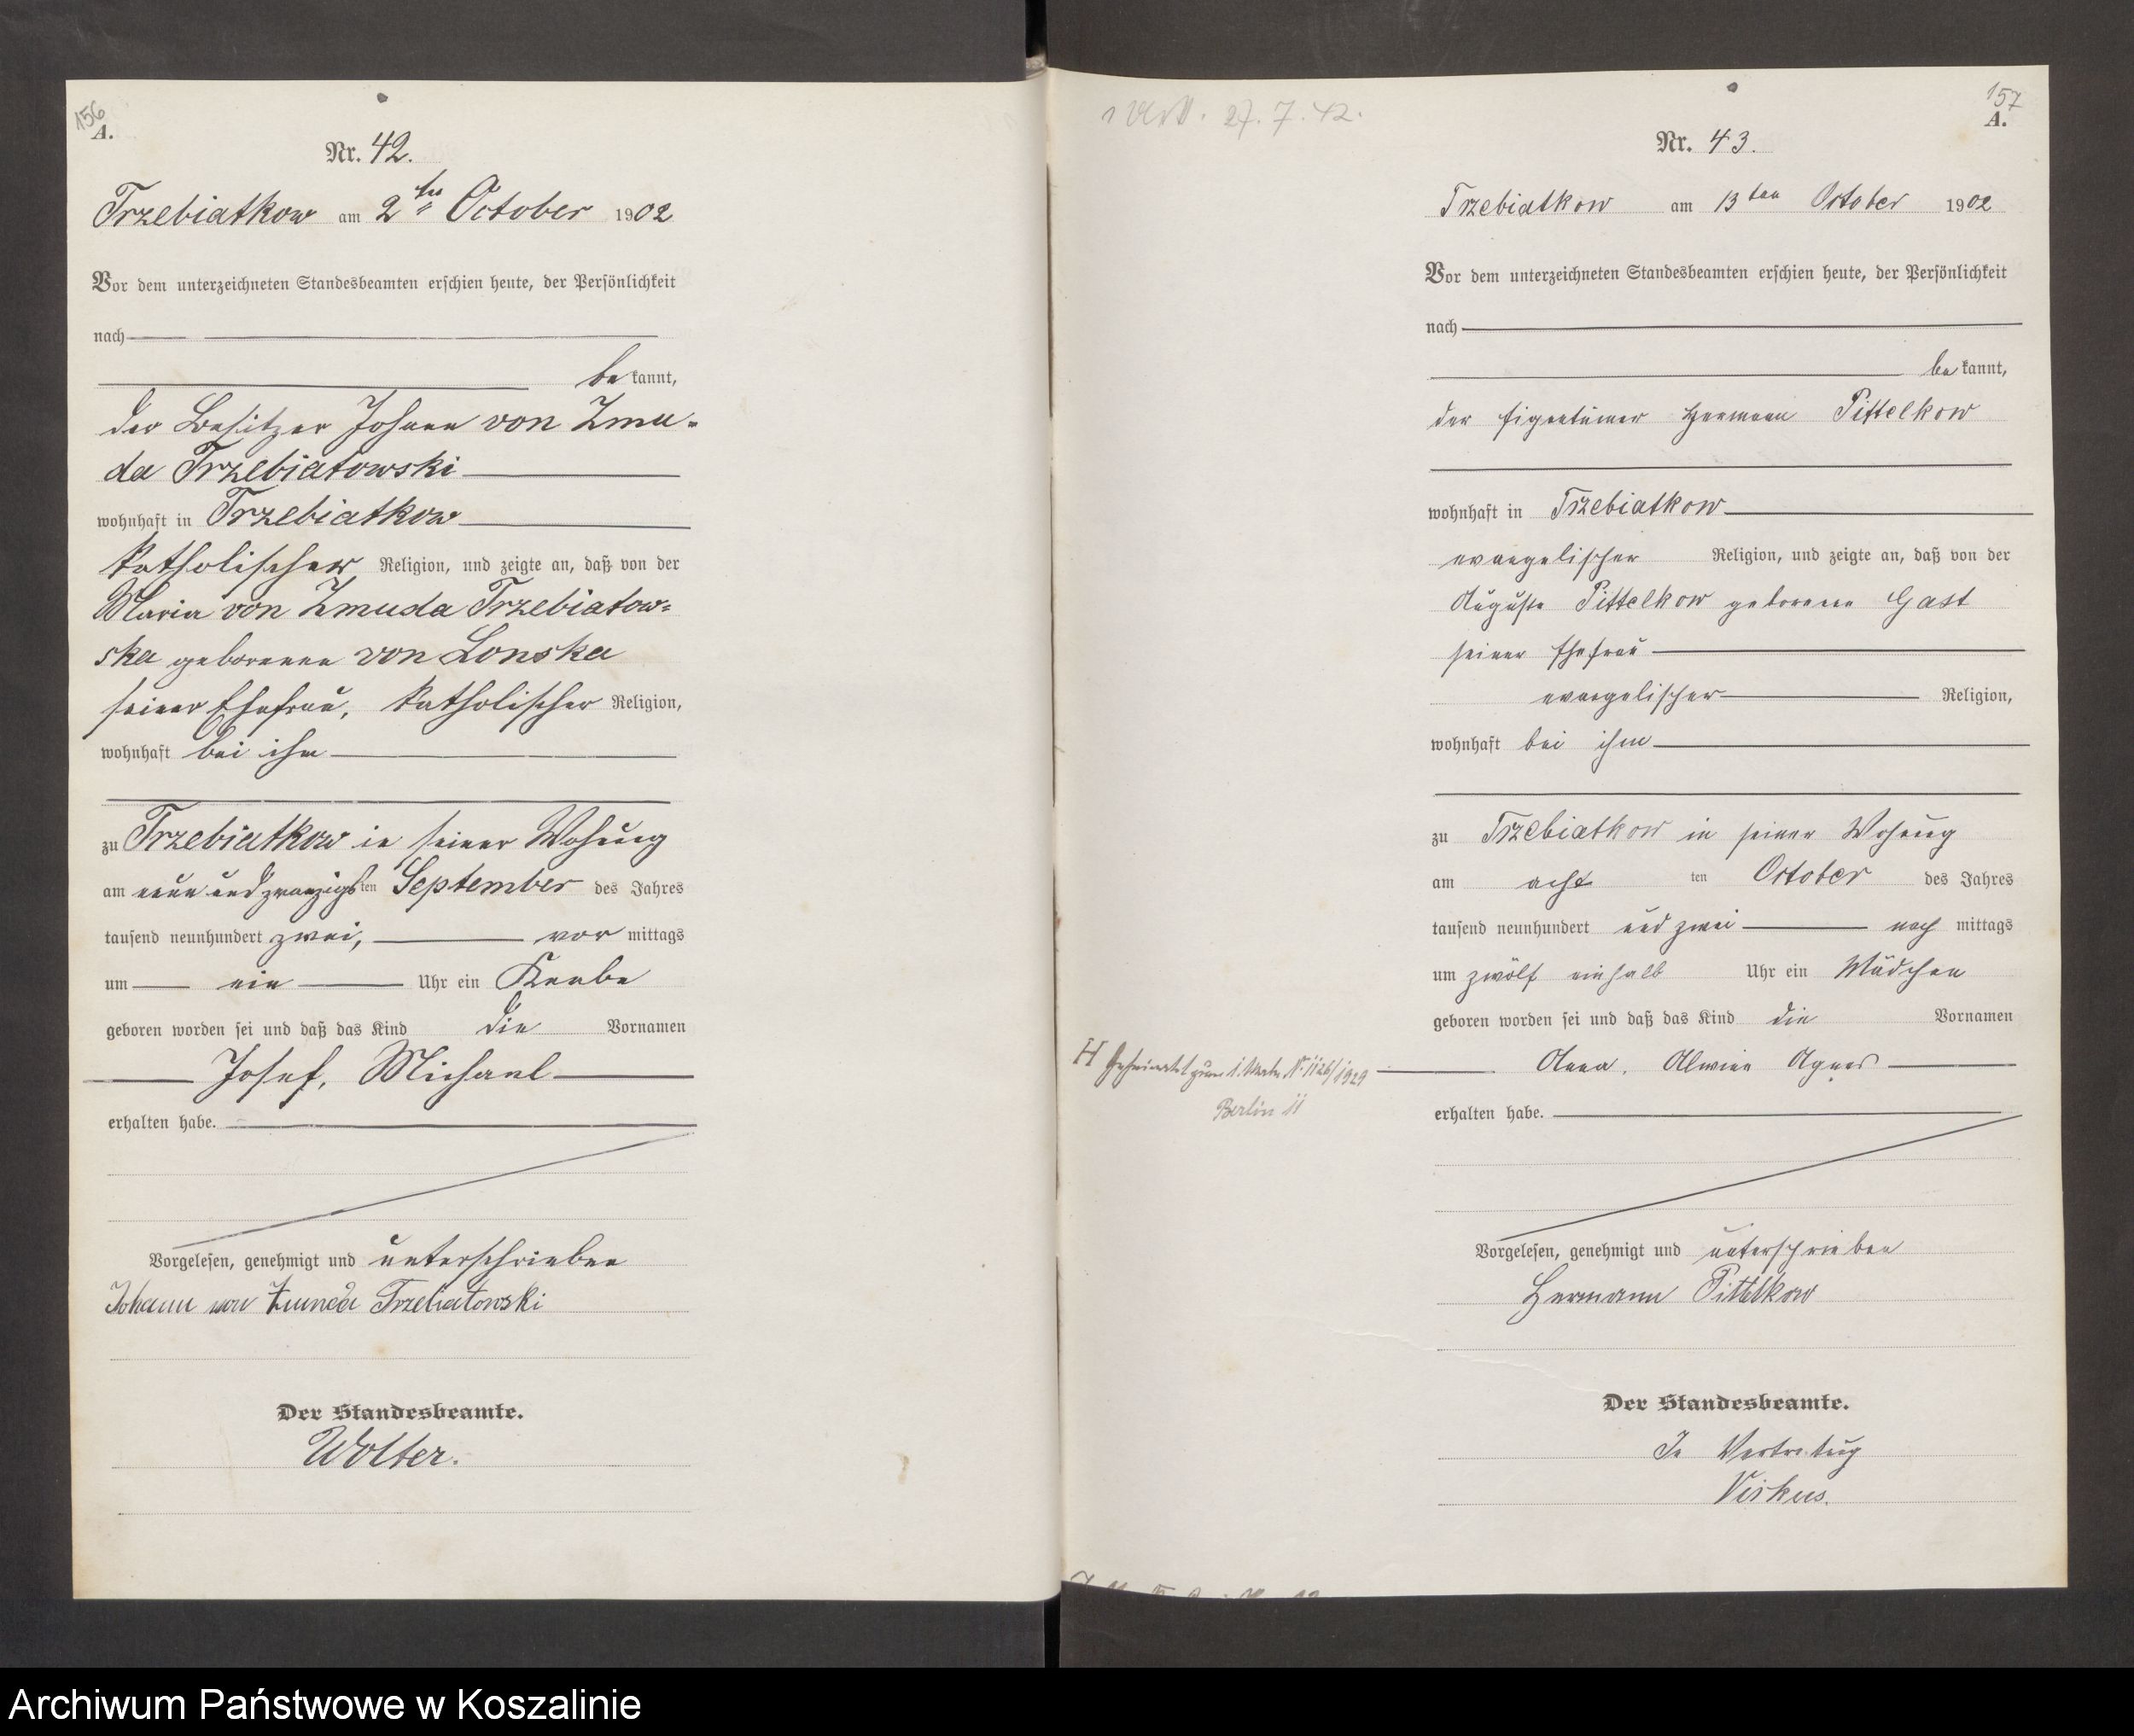 156
A.
Nr. 42.
Trzebiatkow am 2ten October 1902
Vor dem unterzeichneten Standesbeamten erschien heute, der Persönlichkeit
nach
be kannt,
der Besitzer Johann von Zmu-
da Trzebiatowski
wohnhaft in Trzebiatkow
katholischer Religion, und zeigte an, daß von der
Maria von Zmuda Trzebiatow=
ska geborenen von Lonska
seiner Ehefrau, katholischer Religion,
wohnhaft bei ihm
zu Trzebiatkow in seiner Wohnung
am neun und zwanzigsten September des Jahres
tausend neunhundert zwei, vor mittags
um ein Uhr ein Knabe
geboren worden sei und daß das Kind die Vornamen
Josef, Michael
erhalten habe.
Vorgelesen, genehmigt und unterschrieben
Johann von Zmuda Trzebiatowski
Der Standesbeamte.
Wolter.
27. 7. 42.
157
A.
Nr. 43.
Trzebiatkow am 13ten October 1902
Vor dem unterzeichneten Standesbeamten erschien heute, der Persönlichkeit
nach
be kannt,
der Eigentümer Hermann Pittelkow
wohnhaft in Trzebiatkow
evangelischer Religion, und zeigte an, daß von der
Auguste Pittelkow geborenen Gast
seiner Ehefrau
evangelischer Religion,
wohnhaft bei ihm
zu Trzebiatkow in seiner Wohnung
am acht ten October des Jahres
tausend neunhundert und zwei nach mittags
um zwölf einhalb Uhr ein Mädchen
geboren worden sei und daß das Kind die Vornamen
H Geheiratet zum 1. Male Nr 1126/1929
Berlin 11
Anna, Alwine Agnes
erhalten habe.
Vorgelesen, genehmigt und unterschrieben
Hermann Pittelkow
Der Standesbeamte.
In Vertretung
Virkus.
Archiwum Państwowe w Koszalinie